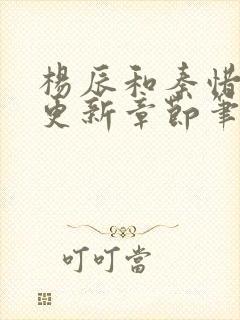 楊辰和秦惜
更新章節筆
叮叮當